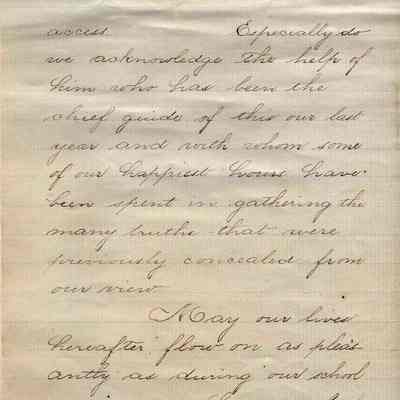 access. Especially do
we acknowledge the help of
him who has been the
chief guide of this our last
year and with whom some
of our happiest hours have
been spent in gathering the
many truths that were
previously concealed from
our view
May our lives
hereafter flow on as pleas
antly as during our school